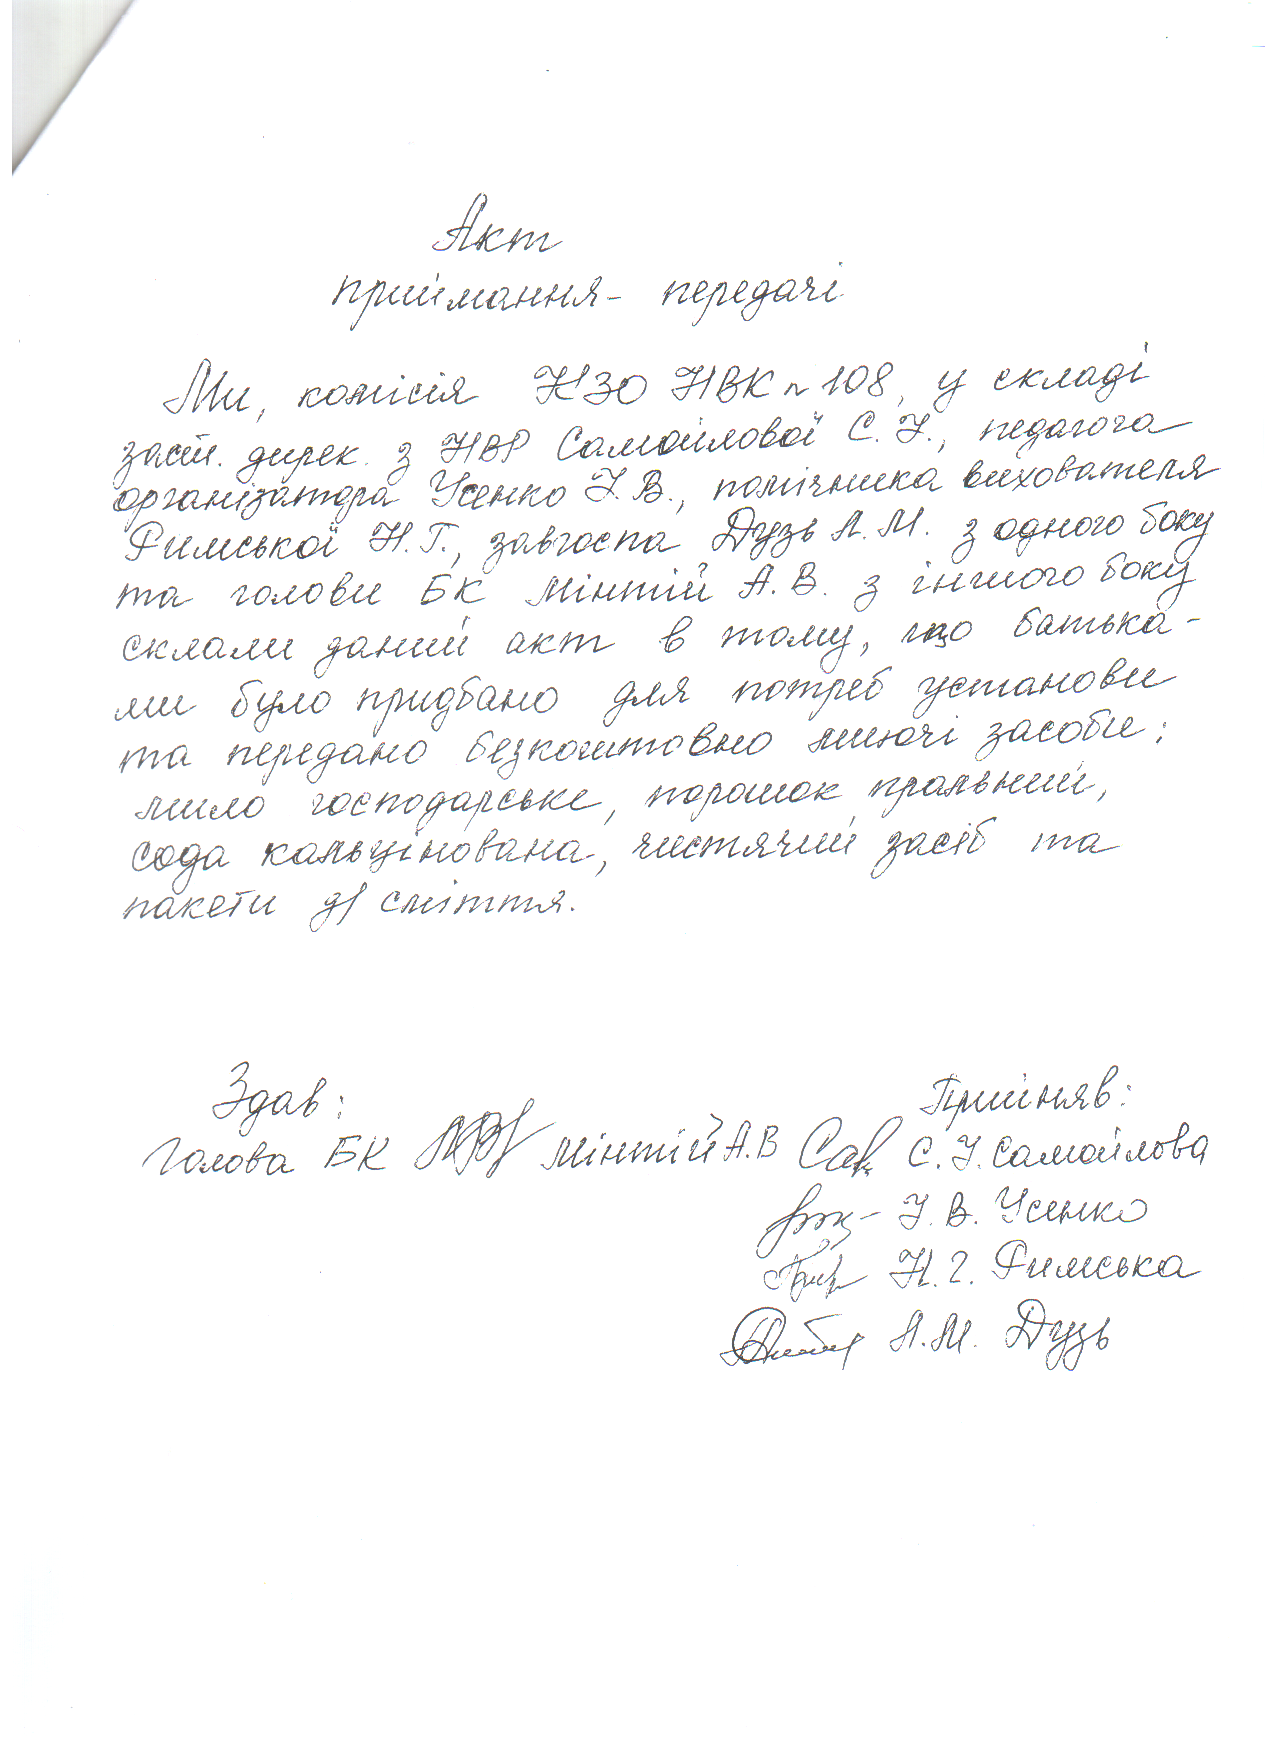 Акт
приймання- передачі
Ми, комісія КЗО НВК № 108, у складі
заст. дирек. з НВР Самойлової С. І., педагога
організатора Усенко І. В., помічника вихователя
Римської Н. Г., завгоспа Дузь А. М. з одного боку
та голови БК Мінтій А. В. з іншого боку
склали даний акт в тому, що батька-
ми було придбано для потреб установи
та передано безкоштовно миючі засоби:
мило господарське, порошок пральний,
сода кальцінована, чистячий засіб та
пакети д/ сміття.
Здав: Прийняв:
Голова БК Мінтій А.В С. І. Самойлова
І. В. Усенко
Н. Г. Римська
А. М. Дузь